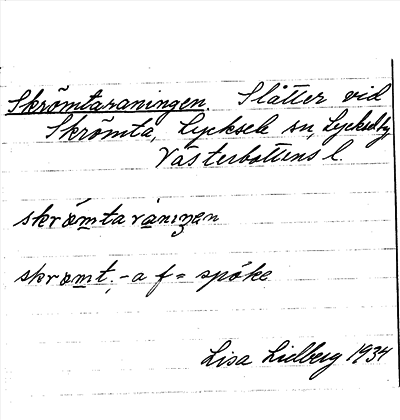 Skrömtaraningen. Slåtter vid
Skrömta, Lycksele sn, Lyckseleby
Västerbottens l.
skrömtaråninᶇen
skrömt, -a f = spöke
Lisa Lidberg 1934